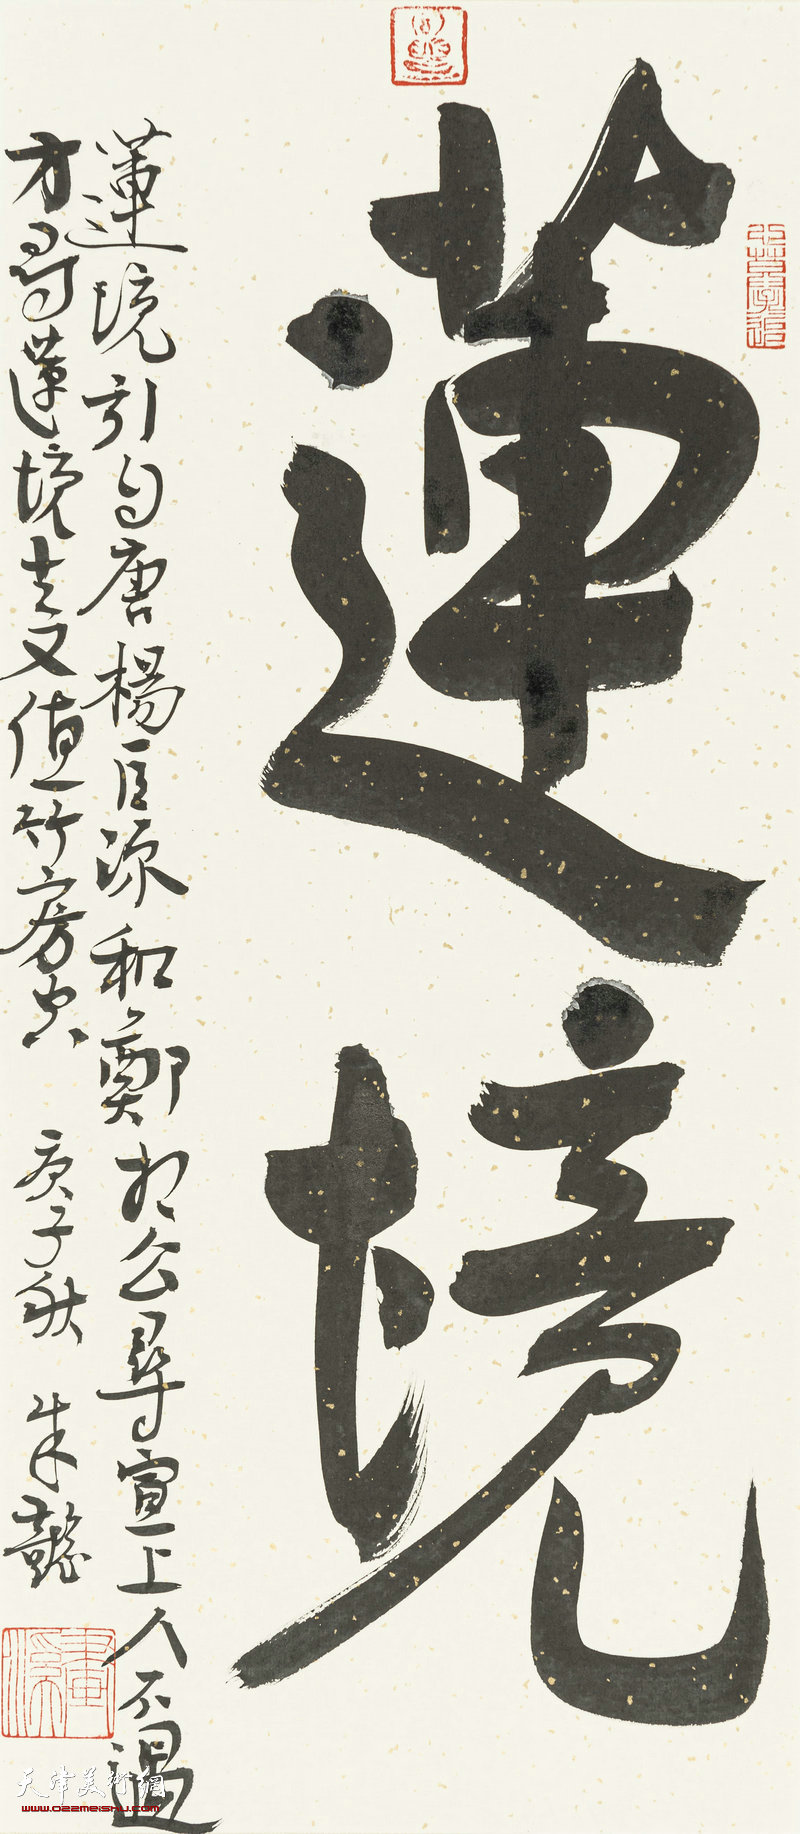 蓮境
蓮境引句唐楊巨源和鄭相公尋宣上人不遇
方尋蓮境去又值竹房空 庚子秋 朱懿
天津美術網
www.022meishu.com